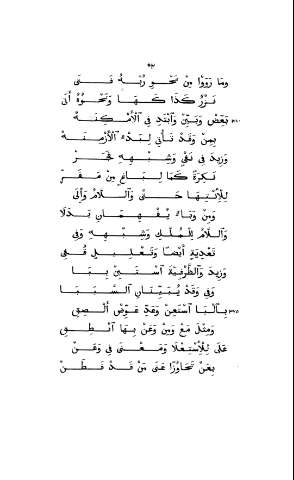 ٣٢
وَمَا رَوَوْا مِنْ نَحْوِ رُبَّهُ فَتَى
نَزْرٌ كَذَا كَهَا وَنَحْوُهُ أَتَى
٣٧٠ بَعِّضْ وَبَيِّنْ وَٱبْتَدِئْ فِي ٱلْأَمْكِنَهْ
بِمِنْ وَقَدْ تَأْتِي لِبَدْءِ ٱلْأَزْمِنَهْ
وَزِيدَ فِي نَفْيٍ وَشِبْهِهِ فَجَرّ
نَكِرَةً كَمَا لِبَاغٍ مِنْ مَفَرّ
لِلْٱنْتِهَا حَتَّى وَٱللَّامُ وَإِلَى
وَمِنْ وَبَاءٌ يُفْهِمَانِ بَدَلَا
وَٱللَّامُ لِلْمِلْكِ وَشِبْهِهِ وَفِي
تَعْدِيَةٍ أَيْضًا وَتَعْلِيلٍ قُفِي
وَزِيدَ وَٱلظَّرْفِيَّةَ ٱسْتَبِنْ بِبَا
وَفِي وَقَدْ يُبَيِّنَانِ ٱلسَّبَبَا
٣٧٥ بِٱلْبَا ٱسْتَعِنْ وَعَدِّ عَوِّضْ أَلْصِقِ
وَمِثْلَ مَعْ وَمِنْ وَعَنْ بِهَا ٱنْطِقِ
عَلَى لِلْٱسْتِعْلَا وَمَعْنَى فِي وَعَنْ
بِعَنْ تَجَاوُزًا عَنَى مَنْ قَدْ فَطَنْ